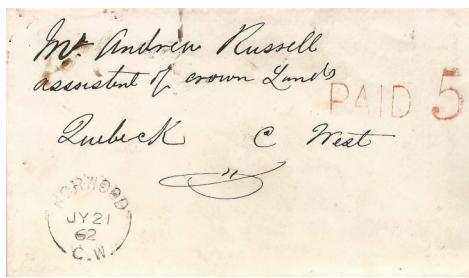 Mr. Andrew Russell
asssistent of crown Lands
PAID 5
Quebeck C West
NORWOOD
JY 21
62
C.W.